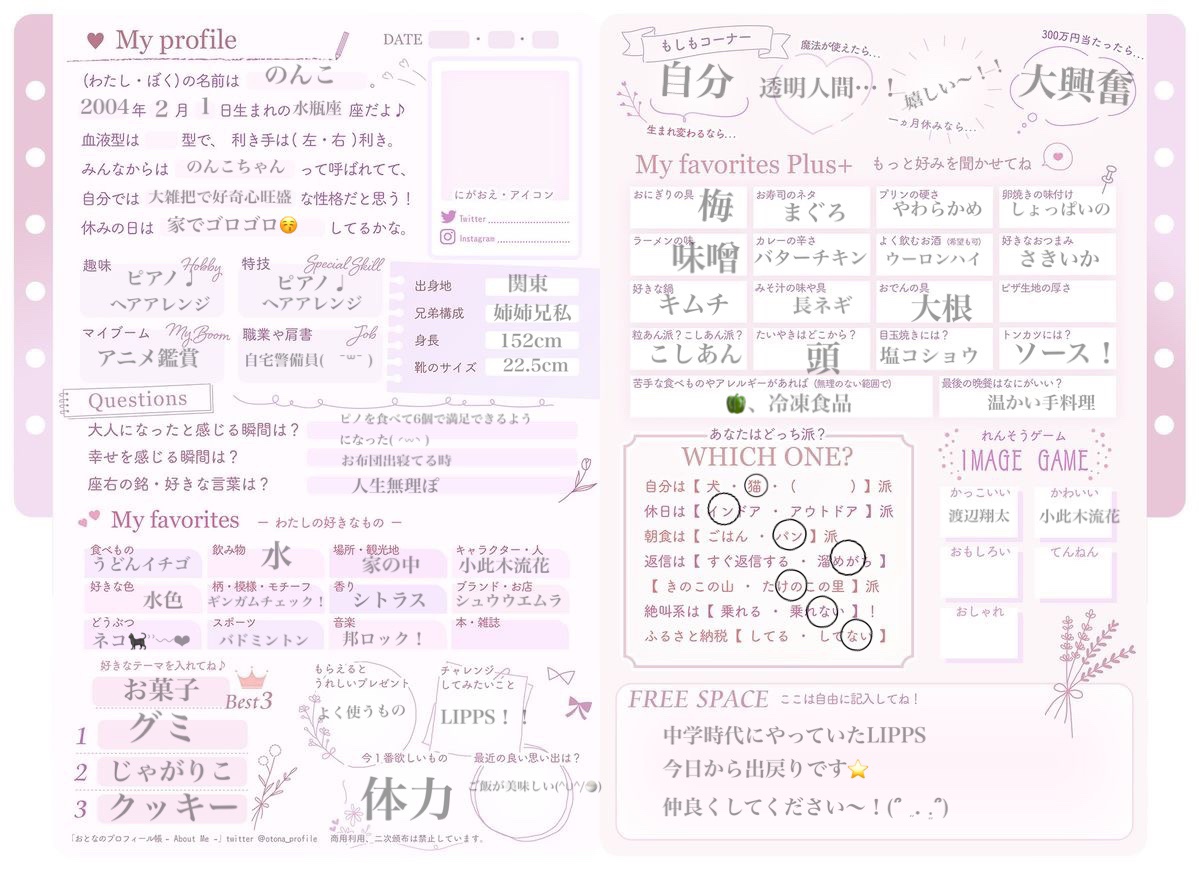 My profile
DATE ・ ・
(わたし・ぼく)の名前は のんこ 。
2004年 2 月 1 日生まれの水瓶座 座だよ♪
血液型は 型で、 利き手は( 左・右 )利き。
みんなからは のんこちゃん って呼ばれてて、
自分では 大雑把で好奇心旺盛 な性格だと思う！
休みの日は 家でゴロゴロ😚 してるかな。
にがおえ・アイコン
Twitter
Instagram
趣味 Hobby
ピアノ♩
ヘアアレンジ
特技 Special Skill
ピアノ♩
ヘアアレンジ
マイブーム My Boom
アニメ鑑賞
職業や肩書 Job
自宅警備員( ¯꒳¯ )
出身地 関東
兄弟構成 姉姉兄私
身長 152cm
靴のサイズ 22.5cm
Questions
大人になったと感じる瞬間は？ ピノを食べて6個で満足できるよう
になった( ᵔ⩊ᵔ )
幸せを感じる瞬間は？ お布団出寝てる時
座右の銘・好きな言葉は？ 人生無理ぽ
My favorites ー わたしの好きなもの ー
食べもの うどんイチゴ
飲み物 水
場所・観光地 家の中
キャラクター・人 小此木流花
好きな色 水色
柄・模様・モチーフ ギンガムチェック！
香り シトラス
ブランド・お店 シュウウエムラ
どうぶつ ネコ🐈‍⬛〰❤
スポーツ バドミントン
音楽 邦ロック！
本・雑誌
好きなテーマを入れてね♪
お菓子
Best3
1 グミ
2 じゃがりこ
3 クッキー
もらえると
うれしいプレゼント
よく使うもの
チャレンジ
してみたいこと
LIPPS！！
今1番欲しいもの
体力
最近の良い思い出は？
ご飯が美味しい(^∪^/🍚)
「おとなのプロフィール帳 - About Me -」twitter @otona_profile 商用利用、二次頒布は禁止しています。
もしもコーナー
自分
生まれ変わるなら...
魔法が使えたら...
透明人間…！
嬉しい〜！！
一ヵ月休みなら...
300万円当たったら...
大興奮
My favorites Plus+ もっと好みを聞かせてね
おにぎりの具 梅
お寿司のネタ まぐろ
プリンの硬さ やわらかめ
卵焼きの味付け しょっぱいの
ラーメンの味 味噌
カレーの辛さ バターチキン
よく飲むお酒 (希望も可) ウーロンハイ
好きなおつまみ さきいか
好きな鍋 キムチ
みそ汁の味や具 長ネギ
おでんの具 大根
ピザ生地の厚さ
粒あん派？こしあん派？ こしあん
たいやきはどこから？ 頭
目玉焼きには？ 塩コショウ
トンカツには？ ソース！
苦手な食べものやアレルギーがあれば (無理のない範囲で)
🫑、冷凍食品
最後の晩餐はなにがいい？
温かい手料理
あなたはどっち派？
WHICH ONE?
自分は【 犬 ・ 猫 ・（ ）】派
休日は【 インドア ・ アウトドア 】派
朝食は【 ごはん ・ パン 】派
返信は【 すぐ返信する ・ 溜めがち 】
【 きのこの山 ・ たけのこの里 】派
絶叫系は【 乗れる ・ 乗れない 】！
ふるさと納税【 してる ・ してない 】
れんそうゲーム
IMAGE GAME
かっこいい 渡辺翔太
かわいい 小此木流花
おもしろい
てんねん
おしゃれ
FREE SPACE ここは自由に記入してね！
中学時代にやっていたLIPPS
今日から出戻りです⭐
仲良くしてください〜！(՞ . .՞)